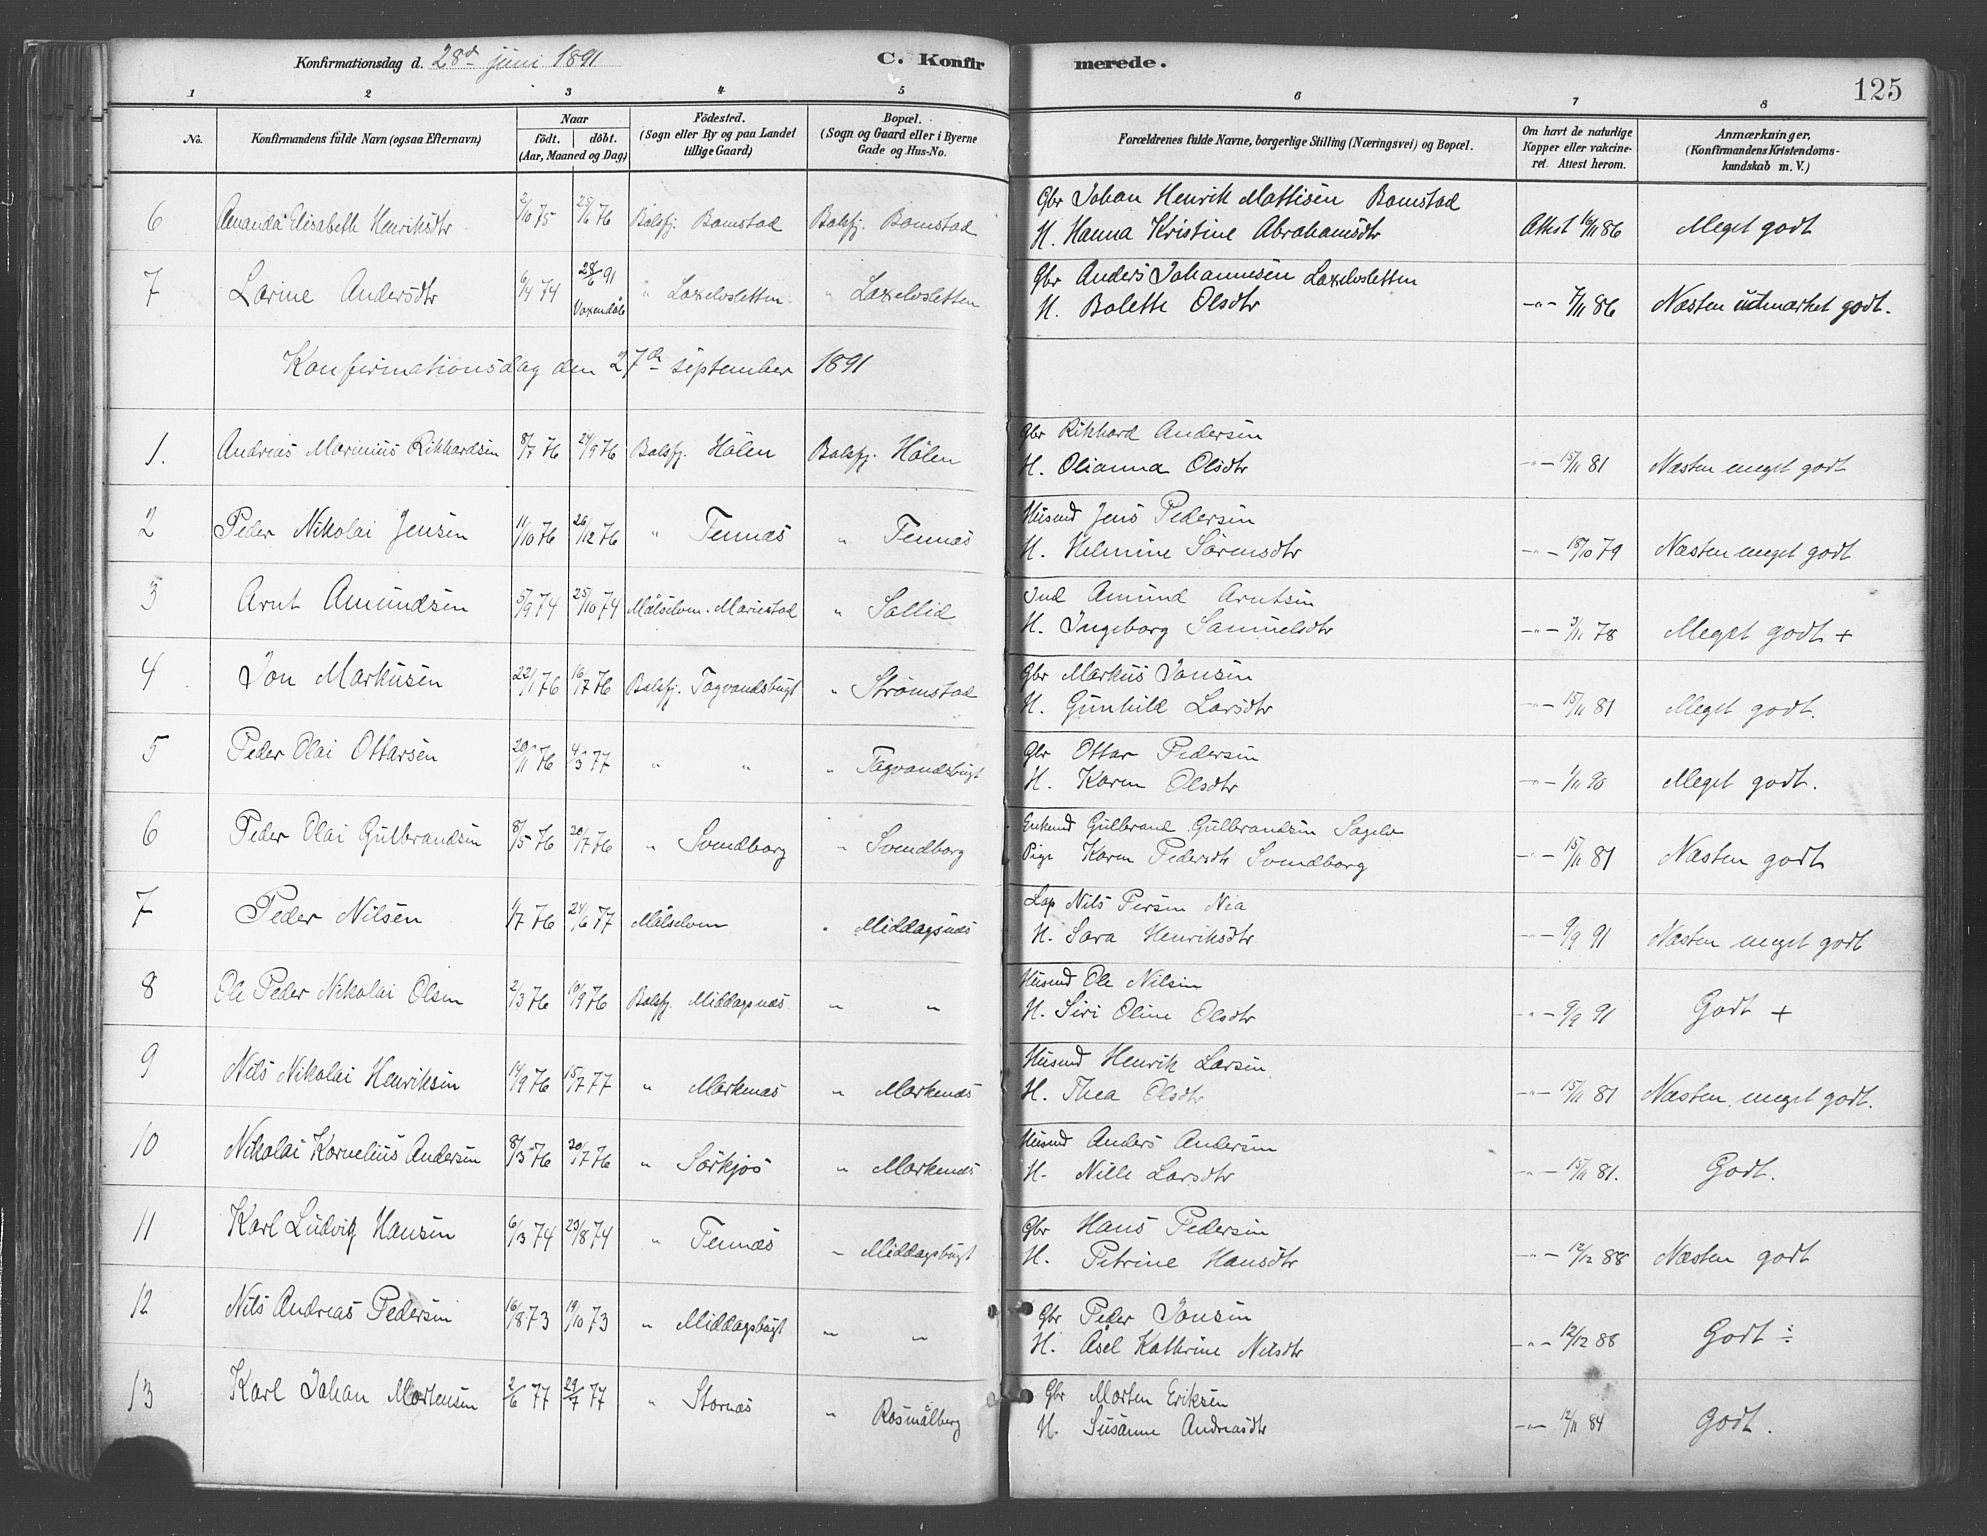 Konfirmationsdag d. 28d juni 1891 C. Konfirmerede. 125
1 2 3 4 5 6 7 8
No. Konfirmandens fulde Navn (ogsaa Efternavn) Naar födt. döbt. (Aar, Maaned og Dag) Födested. (Sogn eller By og paa Landet tillige Gaard) Bopæl. (Sogn og Gaard eller i Byerne Gade og Hus-No. Forældrenes fulde Navne, borgerlige Stilling (Næringsvei) og Bopæl. Om havt de naturlige Kopper eller vakcineret. Attest herom. Anmærkninger, (Konfirmandens Kristendomskundskab m. V.)
6 Amanda Elisabeth Henriksdtr 2/10 75 25/6 76 Balsfj. Bomstad Balsfj. Bomstad Gbr Johan Henrik Mattisen Bomstad
H. Hanna Kristine Abrahamsdtr Attest 16/11 86 Meget godt
7 Larine Andersdtr 6/4 74 28/6 91 Voxendåb " Laxelvsletten " Laxelvsletten Gbr Anders Johannesen Laxelvsletten
H. Bolette Olsdtr -"- 7/11 86 Næsten udmærket godt.
Konfirmationsdag den 27de september 1891
1. Andreas Marinius Rikhardsen 8/7 76 24/9 76 Balsfj. Hölen Balsfj. Hölen Gbr Rikhard Andersen
H. Olianna Olsdtr -"- 15/11 81 Næsten meget godt
2 Peder Nikolai Jensen 11/10 76 26/12 76 " Tennæs " Tennæs Husmd Jens Pedersen
H. Helmine Sörensdtr -"- 18/10 79 Næsten meget godt
3 Arnt Amundsen 5/9 74 25/10 74 Målselven. Mariestad " Sollid Ind Amund Arntsen
H. Ingeborg Samuelsdtr -"- 3/11 78 Meget godt +
4 Jon Markusen 22/1 76 16/7 76 Balsfj. Tagvandsbugt " Strømstad Gbr Markus Jonsen
H. Gunhild Larsdtr -"- 15/11 81 Meget godt.
5 Peder Olai Ottarsen 20/11 76 4/3 77 " " " Tagvandsbugt Gbr Ottar Pedersen
H. Karen Olsdtr -"- 1/11 90 Meget godt.
6 Peder Olai Gulbrandsen 8/5 76 20/7 76 " Svendborg " Svendborg Enkemd Gulbrand Gulbrandsen Sagelv
Pige Karen Pedersdtr Svendborg -"- 15/11 81 Næsten godt
7 Peder Nilsen 1/7 76 24/6 77 Målselven " Middagsnæs Lap Nils Persen Nia
H. Sara Henriksdtr -"- 9/9 91 Næsten meget godt
8 Ole Peder Nikolai Olsen 2/3 76 10/9 76 Balsfj. Middagsnæs " " Husmd Ole Nilsen
H. Siri Oline Olsdtr -"- 9/9 91 Godt +
9 Nils Nikolai Henriksen 14/9 76 15/7 77 " Markenæs " Markenæs Husmd Henrik Larsen
H. Thea Olsdtr -"- 15/11 81 Næsten meget godt.
10 Nikolai Kornelius Andersen 8/3 76 20/7 76 " Sörkjos " Markenæs Husmd Anders Andersen
H. Nille Larsdtr -"- 15/11 81. Godt.
11 Karl Ludvig Hansen 6/3 74 23/8 74 " Tennæs " Middagsbugt Gbr Hans Pedersen
H. Petrine Hansdtr -"- 12/12 88 Næsten godt
12 Nils Andreas Pedersen 16/8 73 19/10 73 " Middagsbugt " " Gbr Peder Jonsen
H. Åsel Kathrine Nilsdtr -"- 12/12 88 Godt ÷
13 Karl Johan Mortensen 2/6 77 29/7 77 " Stornæs " Rosmålberg Gbr Morten Eriksen
H. Susanne Andreasdtr -"- 12/11 84 Godt.